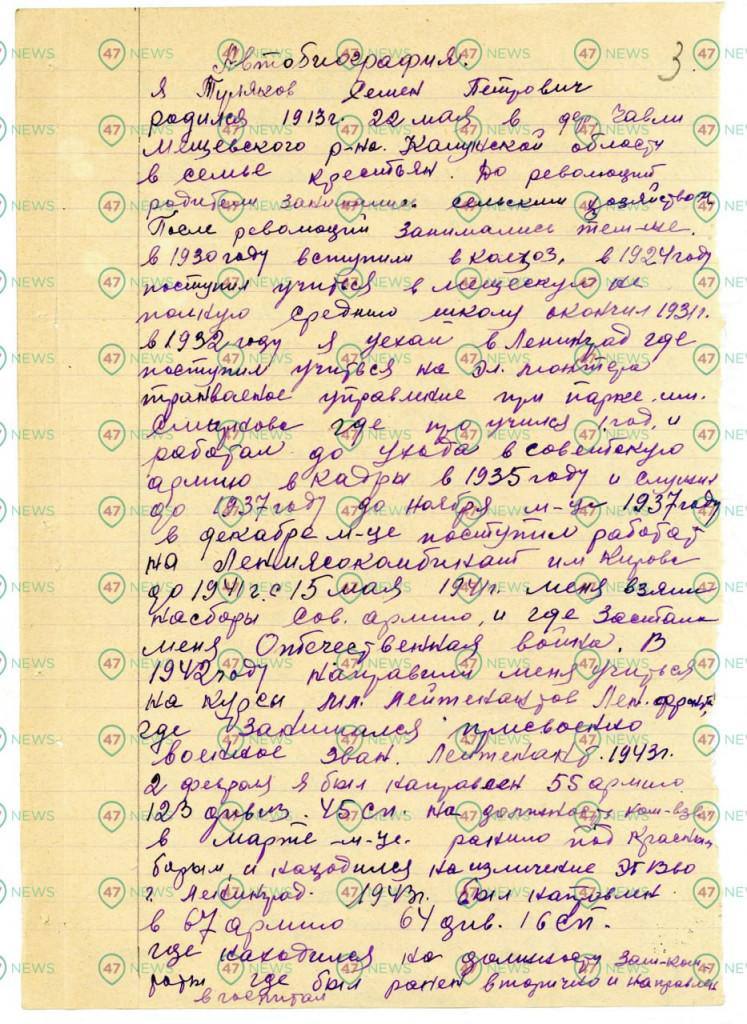 3
Автобиография.
Я Туляков Семен Петрович
родился 1913г. 22 мая в дер. Чавли
Мещевского р-на. Калужской области
в семье крестьян. До революций
родители занимались сельским хозяйством
После революций занимались тем-же.
в 1930 году вступили в колхоз, в 1924 году
поступил учиться в
среднию школу окончил 1931г.
в 1932 году я уехал в Ленинград где
поступил учиться на эл. монтера
трамваеное управление при парке. им.
Смирнова где проучился 1 год, и
работал до ухода в советскую
армию в кадры в 1935 году и служил
до 1937 году до ноября м-ца 1937 году
в декабре м-це поступил работат
на Ленмясокомбинат им Кирова
до 1941г. с 15 мая 1941г. меня взяли
насборы Сов. армию, и где Застала
меня Отечественная война. В
1942 году направили меня учиться
на курсы мл. лейтенантов Лен. фронта,
где занимался присвоенно
военное зван. Лейтенант. 1943г.
2 февраля я был направлен 55 армию
123 дивиз. 45 сп. на должность ком-взв.
в марте м-це. ранило под Красным
бором и находился на изличение
г. Ленинград. 1943г. был направлен
в 67 армию 64 див. 16 сп.
где находился на должность Зам-ком.
роты где был ранен вторично и направлен
в госпитал